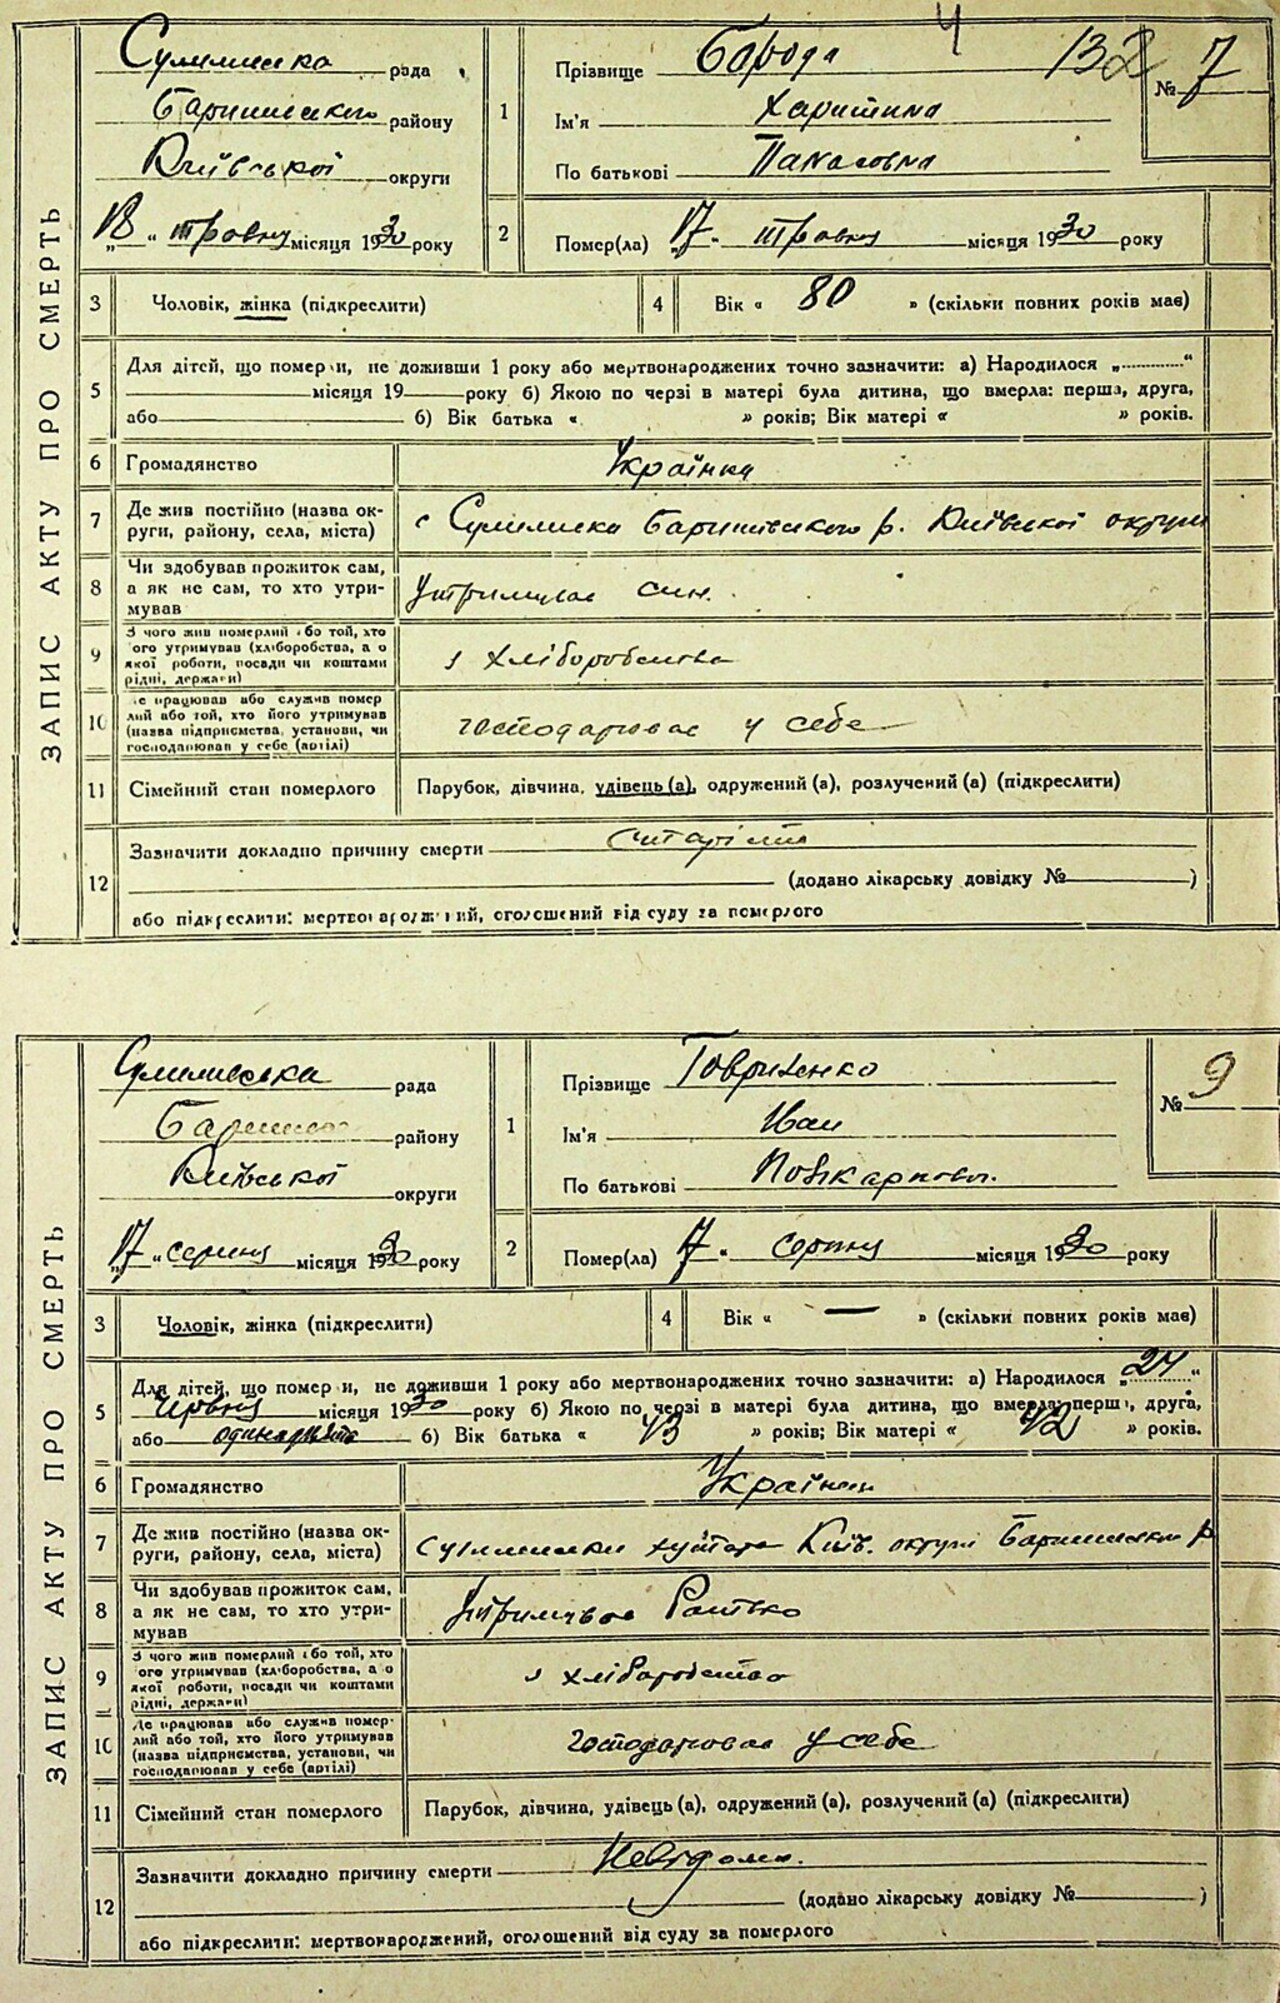 ЗАПИС АКТУ ПРО СМЕРТЬ
4
132
№ 7
рада
Баришівського району
Київської округи
„18“ травня місяця 1930 року
1
Прізвище Борода
Ім'я Харитина
По батькові Панасовна
2
Помер(ла) „17“ травня місяця 1930 року
3 Чоловік, жінка (підкреслити)
4 Вік « 80 » (скільки повних років має)
5 Для дітей, що померли, не доживши 1 року або мертвонароджених точно зазначити: а) Народилося „ “
місяця 19 року б) Якою по черзі в матері була дитина, що вмерла: перша, друга,
або б) Вік батька « » років; Вік матері « » років.
6 Громадянство Українка
7 Де жив постійно (назва округи, район, села, міста) с Баришівського р. Київської округи
8 Чи здобував прожиток сам,
а як не сам, то хто утри-
мував
утримував син.
9 З чого жив померлий або той, хто
ого утримував (хліборобства, а о
якої роботи, посади чи коштами
рідні, держави)
з хліборобства
10 де працював або служив помер
лий або той, хто його утримував
(назва підприємства, установи, чи
господарював у себе (артілі)
господарював у себе
11 Сімейний стан померлого Парубок, дівчина, удівець (а), одружений (а), розлучений (а) (підкреслити)
12 Зазначити докладно причину смерти старість
(додано лікарську довідку № )
або підкреслити: мертвонароджений, оголошений від суду за померлого
ЗАПИС АКТУ ПРО СМЕРТЬ
№ 9
рада
району
Київської округи
„17“ серпня місяця 1930 року
1
Прізвище Говриленко
Ім'я Иван
По батькові
2
Помер(ла) „17“ серпня місяця 1930 року
3 Чоловік, жінка (підкреслити)
4 Вік « — » (скільки повних років має)
5 Для дітей, що померли, не доживши 1 року або мертвонароджених точно зазначити: а) Народилося „24“
червня місяця 1930 року б) Якою по черзі в матері була дитина, що вмерла: перша, друга,
або б) Вік батька « 43 » років; Вік матері « 42 » років.
6 Громадянство Українец
7 Де жив постійно (назва ок-
руги, району, села, міста)
хутора Київ. округи р
8 Чи здобував прожиток сам,
а як не сам, то хто утри-
мував
утримував батько
9 З чого жив померлий або той, хто
ого утримував (хліборобства, а о
якої роботи, посади чи коштами
рідні, держави)
з хліборобства
10 Де працював або служив помер-
лий або той, хто його утримував
(назва підприємства, установи, чи
господарював у себе (артілі)
господарював у себе
11 Сімейний стан померлого Парубок, дівчина, удівець (а), одружений (а), розлучений (а) (підкреслити)
12 Зазначити докладно причину смерти Невідома.
(додано лікарську довідку № )
або підкреслити: мертвонароджений, оголошений від суду за померлого